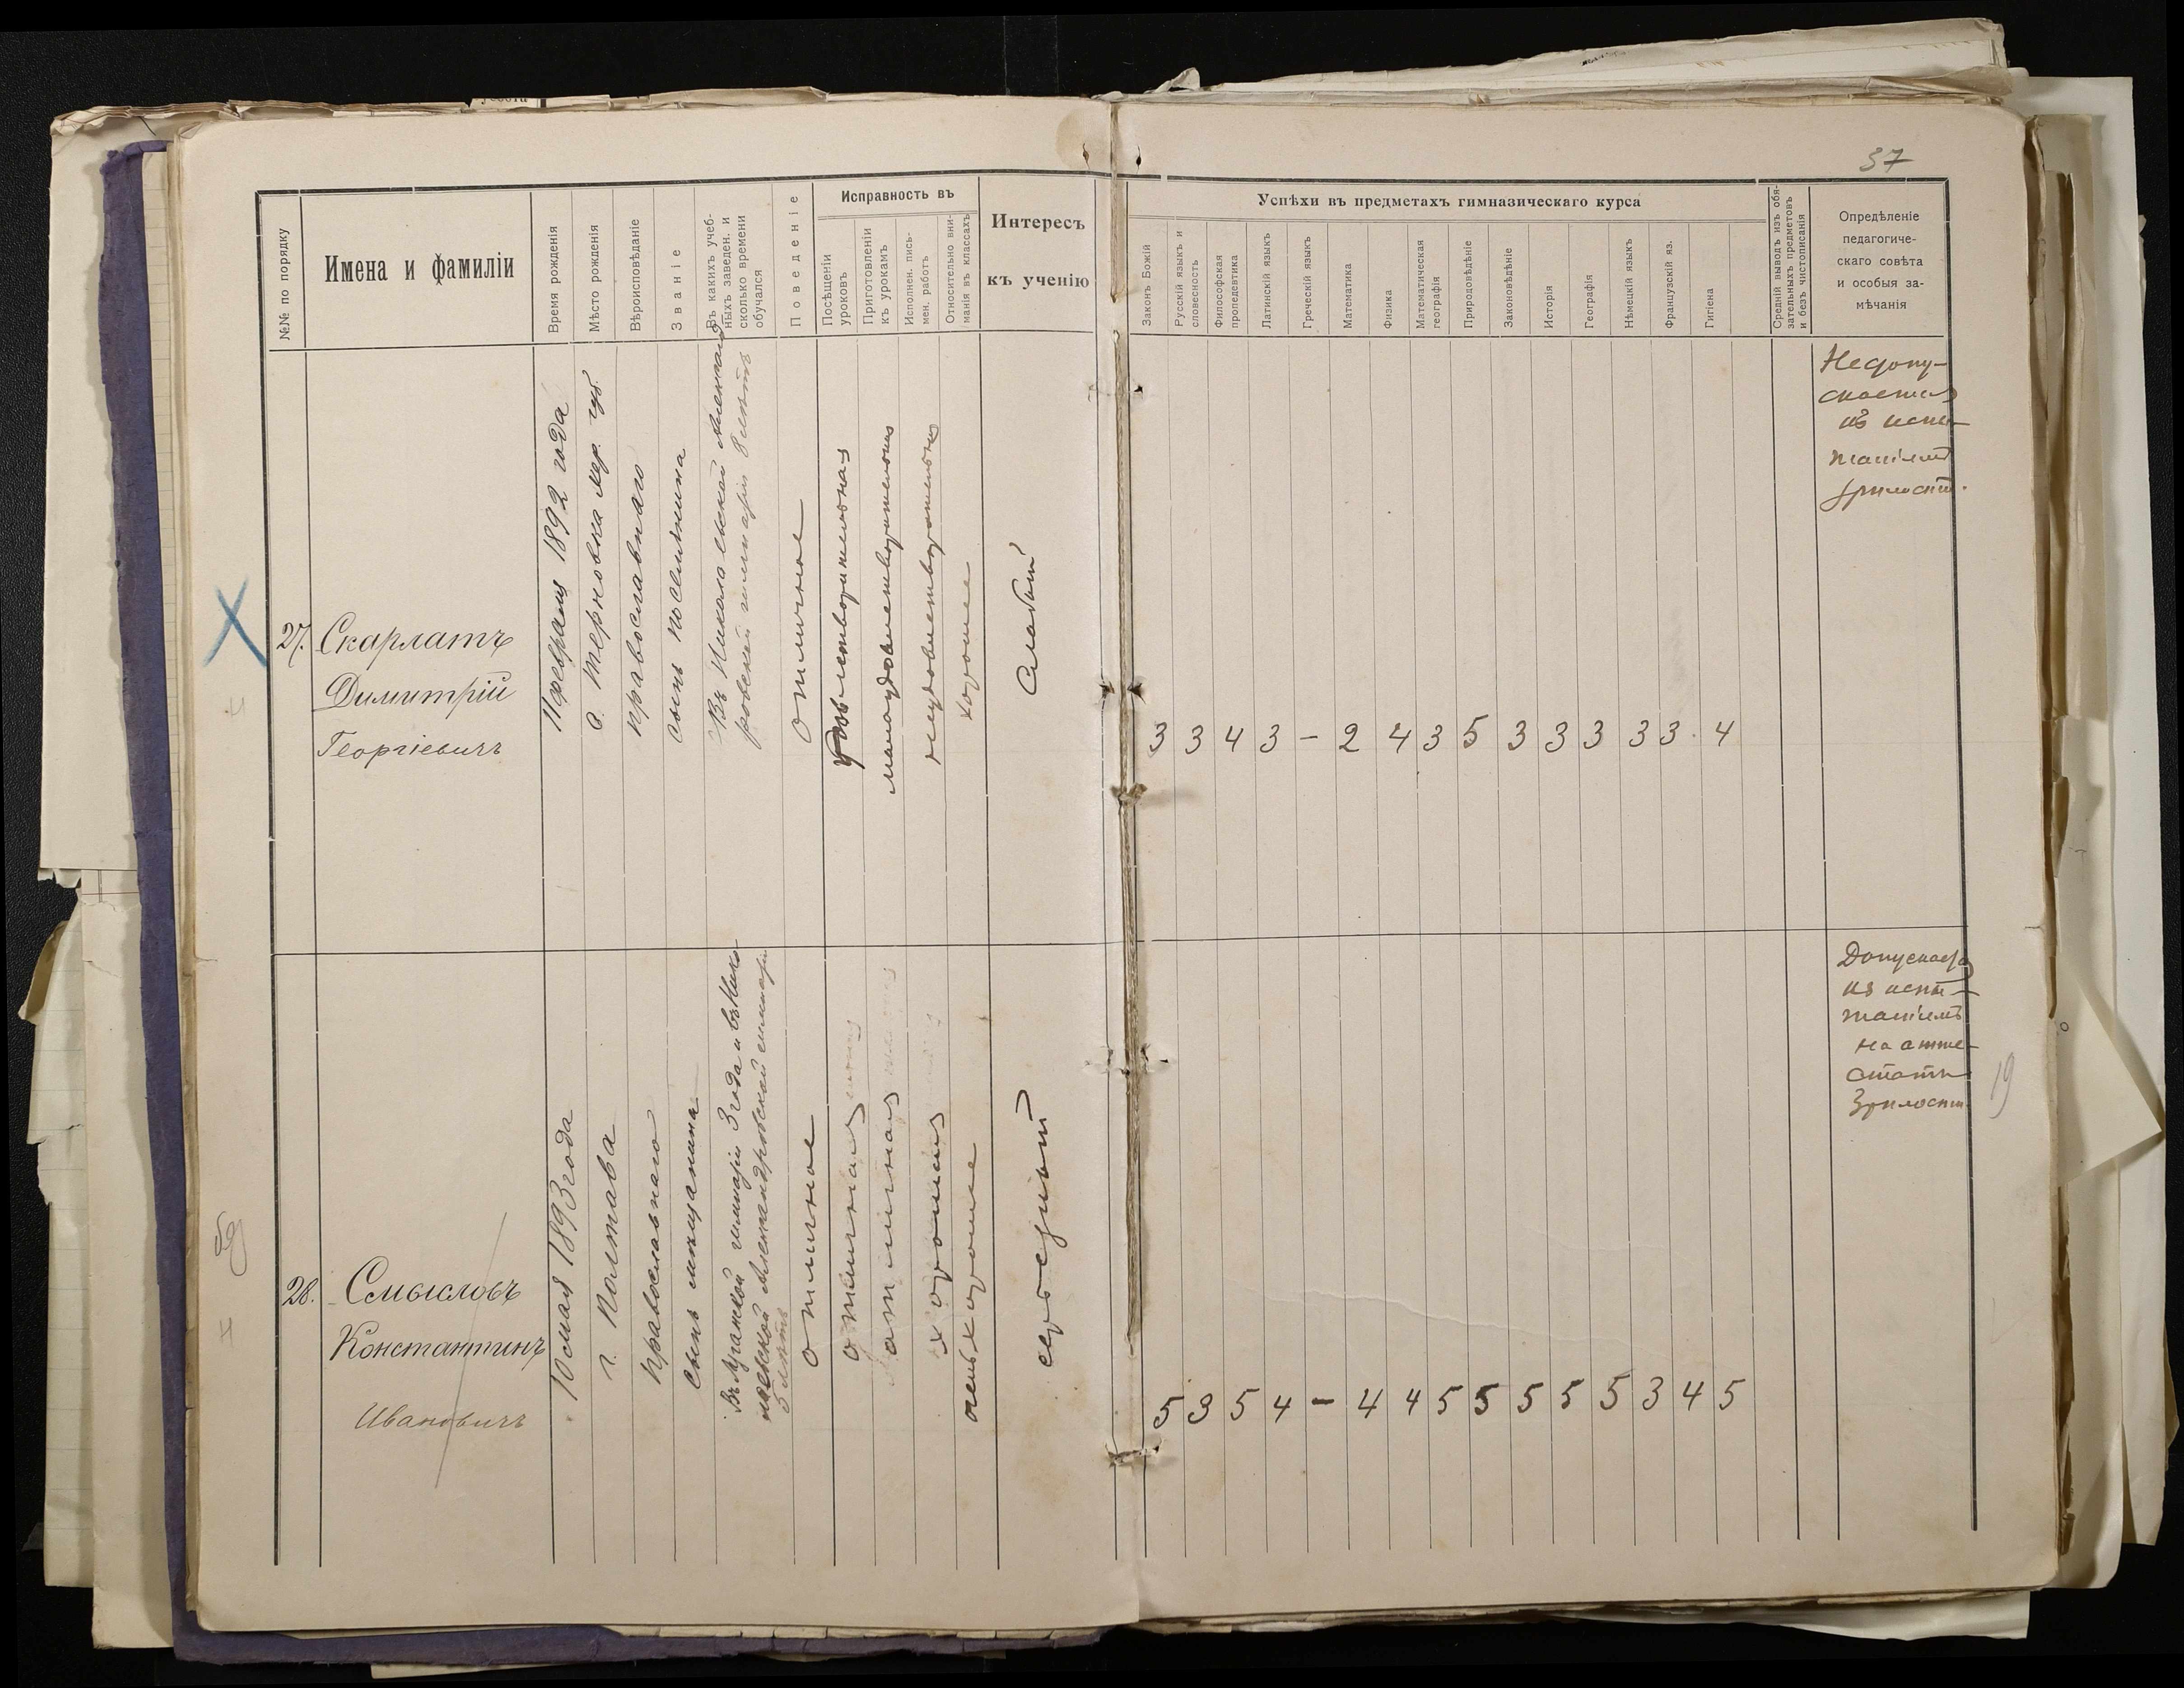 37
№№ по порядку
Имена и фамиліи
Время рожденія
Мѣсто рожденія
Вѣроисповѣданіе
Званіе
Въ какихъ учеб-
ныхъ заведен. и
сколько времени
обучался
Поведеніе
Исправность въ
Посѣщеніи
уроковъ
Приготовленіи
къ урокамъ
Исполнен. пись-
мен. работъ
Относительно вни-
манія въ классахъ
Интересъ
къ ученію
Успѣхи въ предметахъ гимназическаго курса
Законъ Божій
Русскій языкъ и
словесность
Философская
пропедевтика
Латинскій языкъ
Греческій языкъ
Математика
Физика
Математическая
географія
Природовѣдѣніе
Законовѣдѣніе
Исторія
Географія
Нѣмецкій языкъ
Французскій яз.
Гигіена
Средній выводъ изъ обя-
зательныхъ предметовъ
и безъ чистописанія
Опредѣленіе
педагогиче-
скаго совѣта
и особыя за-
мѣчанія
27.
Скарлатъ
Димитрій
Георгіевичъ
11 февраля 1892 года
с. Терновка Хер. губ.
православнаго
сынъ поселянина
Въ Николаевской Александ
ровской гимназіи 8 лѣтъ
отличное
удовлетворительная
малоудовлетворительная
неудовлетворительная
хорошее
Слабый
3 3 4 3 – 2 4 3 5 3 3 3 3 3 4
Недопу-
скается
къ испы-
таніямъ
зрѣлости.
28.
Смысловъ
Константинъ
Ивановичъ
10 мая 1893 года
г. Полтава
православнаго
сынъ мѣщанина
Въ Луганской гимназіи 3 года и въ Нико
лаевской Александровской гимназіи
5 лѣтъ
отличное
отличная
отличная
хорошая
очень хорошее
средный
5 3 5 4 – 4 4 5 5 5 5 5 3 4 5
Допускается
къ испы-
таніямъ
на атте-
статъ
Зрѣлости.
19